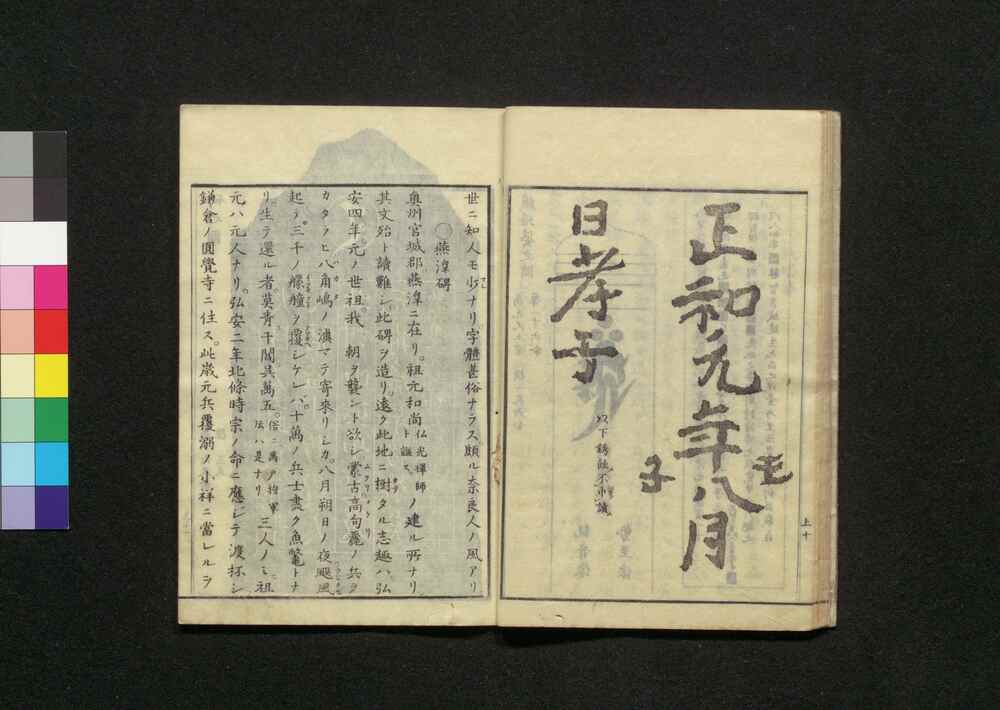 正和元年八月
日孝子
以下銹蝕不可讀
上十
世ニ知人モ少ナリ字體甚俗ナラス頗ル奈良人ノ風アリ
◯燕澤碑
奥州宮城郡燕澤ニ在リ。祖元和尚佛光禪師ト諡スノ建ル所ナリ
其文殆ト讀難シ此碑ヲ造リ遠ク此地ニ樹タル志趣ハ弘
安四年元ノ世祖我 朝ヲ襲ント欲シ蒙古高句麗ノ兵ヲ
カタラヒ八角嶋ノ濱マテ寄來リシカ。八月朔日ノ夜颶風
起テ。三千ノ艨艟ヲ覆シケレハ。十萬ノ兵士盡ク魚鼈トナ
リ。生テ還ル者莫青干閭呉萬五。俗ニ萬ノ将軍ハ是ナリ三人ノミ。祖
元ハ元人ナリ。弘安二年北條時宗ノ命ニ應シテ渡杯シ
鎌倉ノ圓覺寺ニ住ス。此歳元兵覆溺ノ小祥ニ當レルヲ